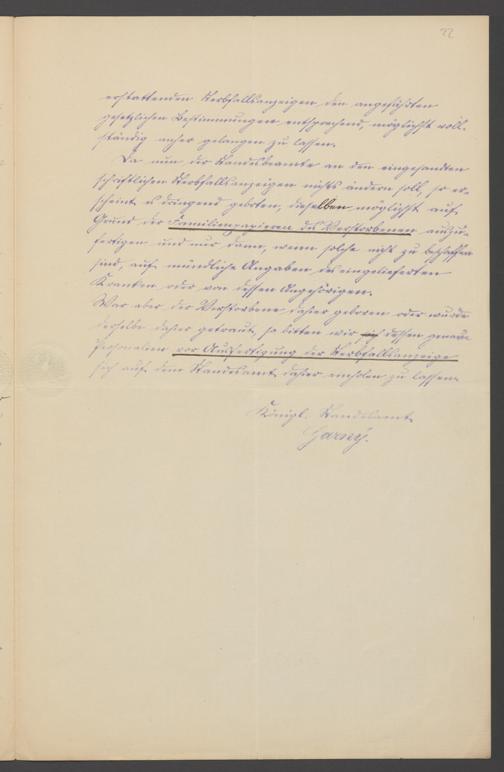 22
erstattenden Sterbfallsanzeigen den angeführten
gesetzlichen Bestimmungen entsprechend, möglichst voll-
ständig anher gelangen zu lassen.
Da nun der Standesbeamte an den eingesandten
schriftlichen Sterbfallsanzeigen nichts ändern soll, so er-
scheint es dringend geboten, dieselben möglichst auf
Grund der Familienpapieren des Verstorbenen auszu-
fertigen und nur dann, wenn solche nicht zu beschaffen
sind, auf mündliche Angaben des eingelieferten
Kranken oder von dessen Angehörigen.
War aber der Verstorbene dahier geboren oder wurde
derselbe dahier getraut, so bitten wir dessen genaue
Personalien vor Ausfertigung der Sterbfallsanzeige
sich auf dem Standesamt dahier einholen zu lassen.
Königl. Standesamt